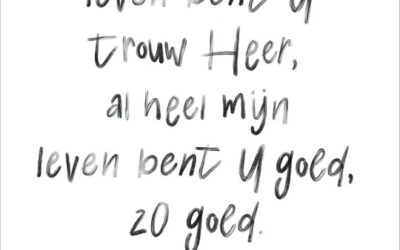 leven bent U
trouw Heer,
al heel mijn
leven bent U goed,
zo goed.